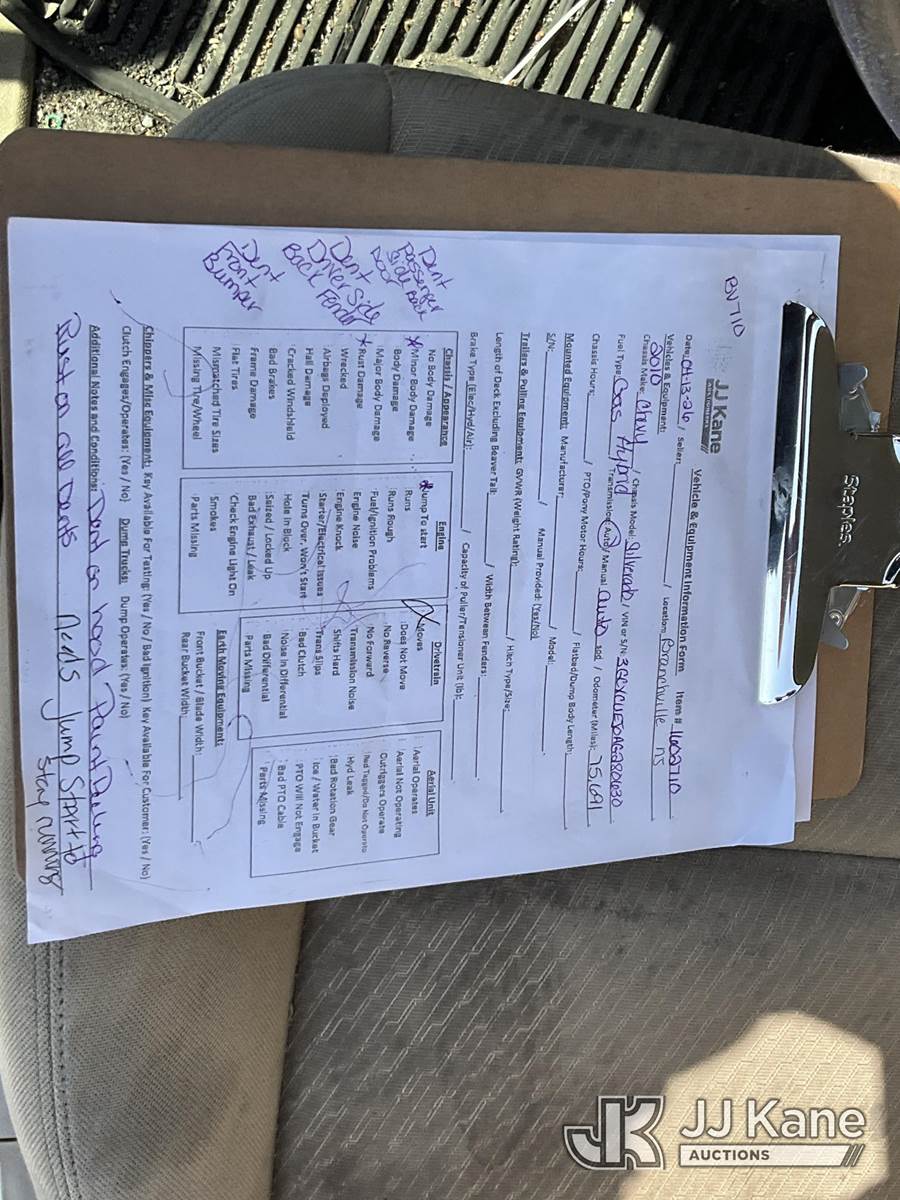 BV710
JJ Kane
AUCTIONS
Vehicle & Equipment Information Form Item # 1602710
Date: 04-13-26 / Seller: / Location: Branchville NJ
Vehicles & Equipment:
2010
Chassis Make: Chevy / Chassis Model: Silverado / VIN or S/N:
Fuel Type: Gas Hybrid Transmission: Auto / Manual auto Spd / Odometer (Miles): 75,691
Chassis Hours: / PTO/Pony Motor Hours: / Flatbed/Dump Body Length:
Mounted Equipment: Manufacturer: / Model:
S/N: / Manual Provided: (Yes/No)
Trailers & Pulling Equipment: GVWR (Weight Rating): / Hitch Type/Size:
Length of Deck Excluding Beaver Tail: / Width Between Fenders:
Brake Type (Elec/Hyd/Air): / Capacity of Puller/Tensioner Unit (lb):
Dent
Passenger
Side Back
Door
Dent
Driver Side
Back Fender
Dent
Front
Bumper
Chassis / Appearance
No Body Damage
* Minor Body Damage
Body Damage
Major Body Damage
* Rust Damage
Wrecked
Airbags Deployed
Hail Damage
Cracked Windshield
Bad Brakes
Frame Damage
Flat Tires
Mismatched Tire Sizes
Missing Tire/Wheel
Engine
Jump To start
Runs
Runs Rough
Fuel/Ignition Problems
Engine Noise
Engine Knock
Starter/Electrical Issues
Turns Over, Won't Start
Hole In Block
Seized / Locked Up
Bad Exhaust / Leak
Check Engine Light On
Smokes
Parts Missing
Drivetrain
Moves
Does Not Move
No Reverse
No Forward
Transmission Noise
Shifts Hard
Trans Slips
Bad Clutch
Noise in Differential
Bad Differential
Parts Missing
Earth Moving Equipment:
Front Bucket / Blade Width:
Rear Bucket Width:
Aerial Unit
Aerial Operates
Aerial Not Operating
Outriggers Operate
Red Tagged/Do Not Operate
Hyd Leak
Bad Rotation Gear
Ice / Water in Bucket
PTO Will Not Engage
Bad PTO Cable
Parts Missing
Chippers & Misc Equipment: Key Available For Testing: (Yes / No / Bad Ignition) Key Available For Customer: (Yes / No)
Clutch Engages/Operates: (Yes / No) Dump Trucks: Dump Operates: (Yes / No)
Additional Notes and Conditions: Dent on hood Paint Peeling
Rust on all Dents Needs Jump Start to
stay running
Staples.
JK JJ Kane
AUCTIONS